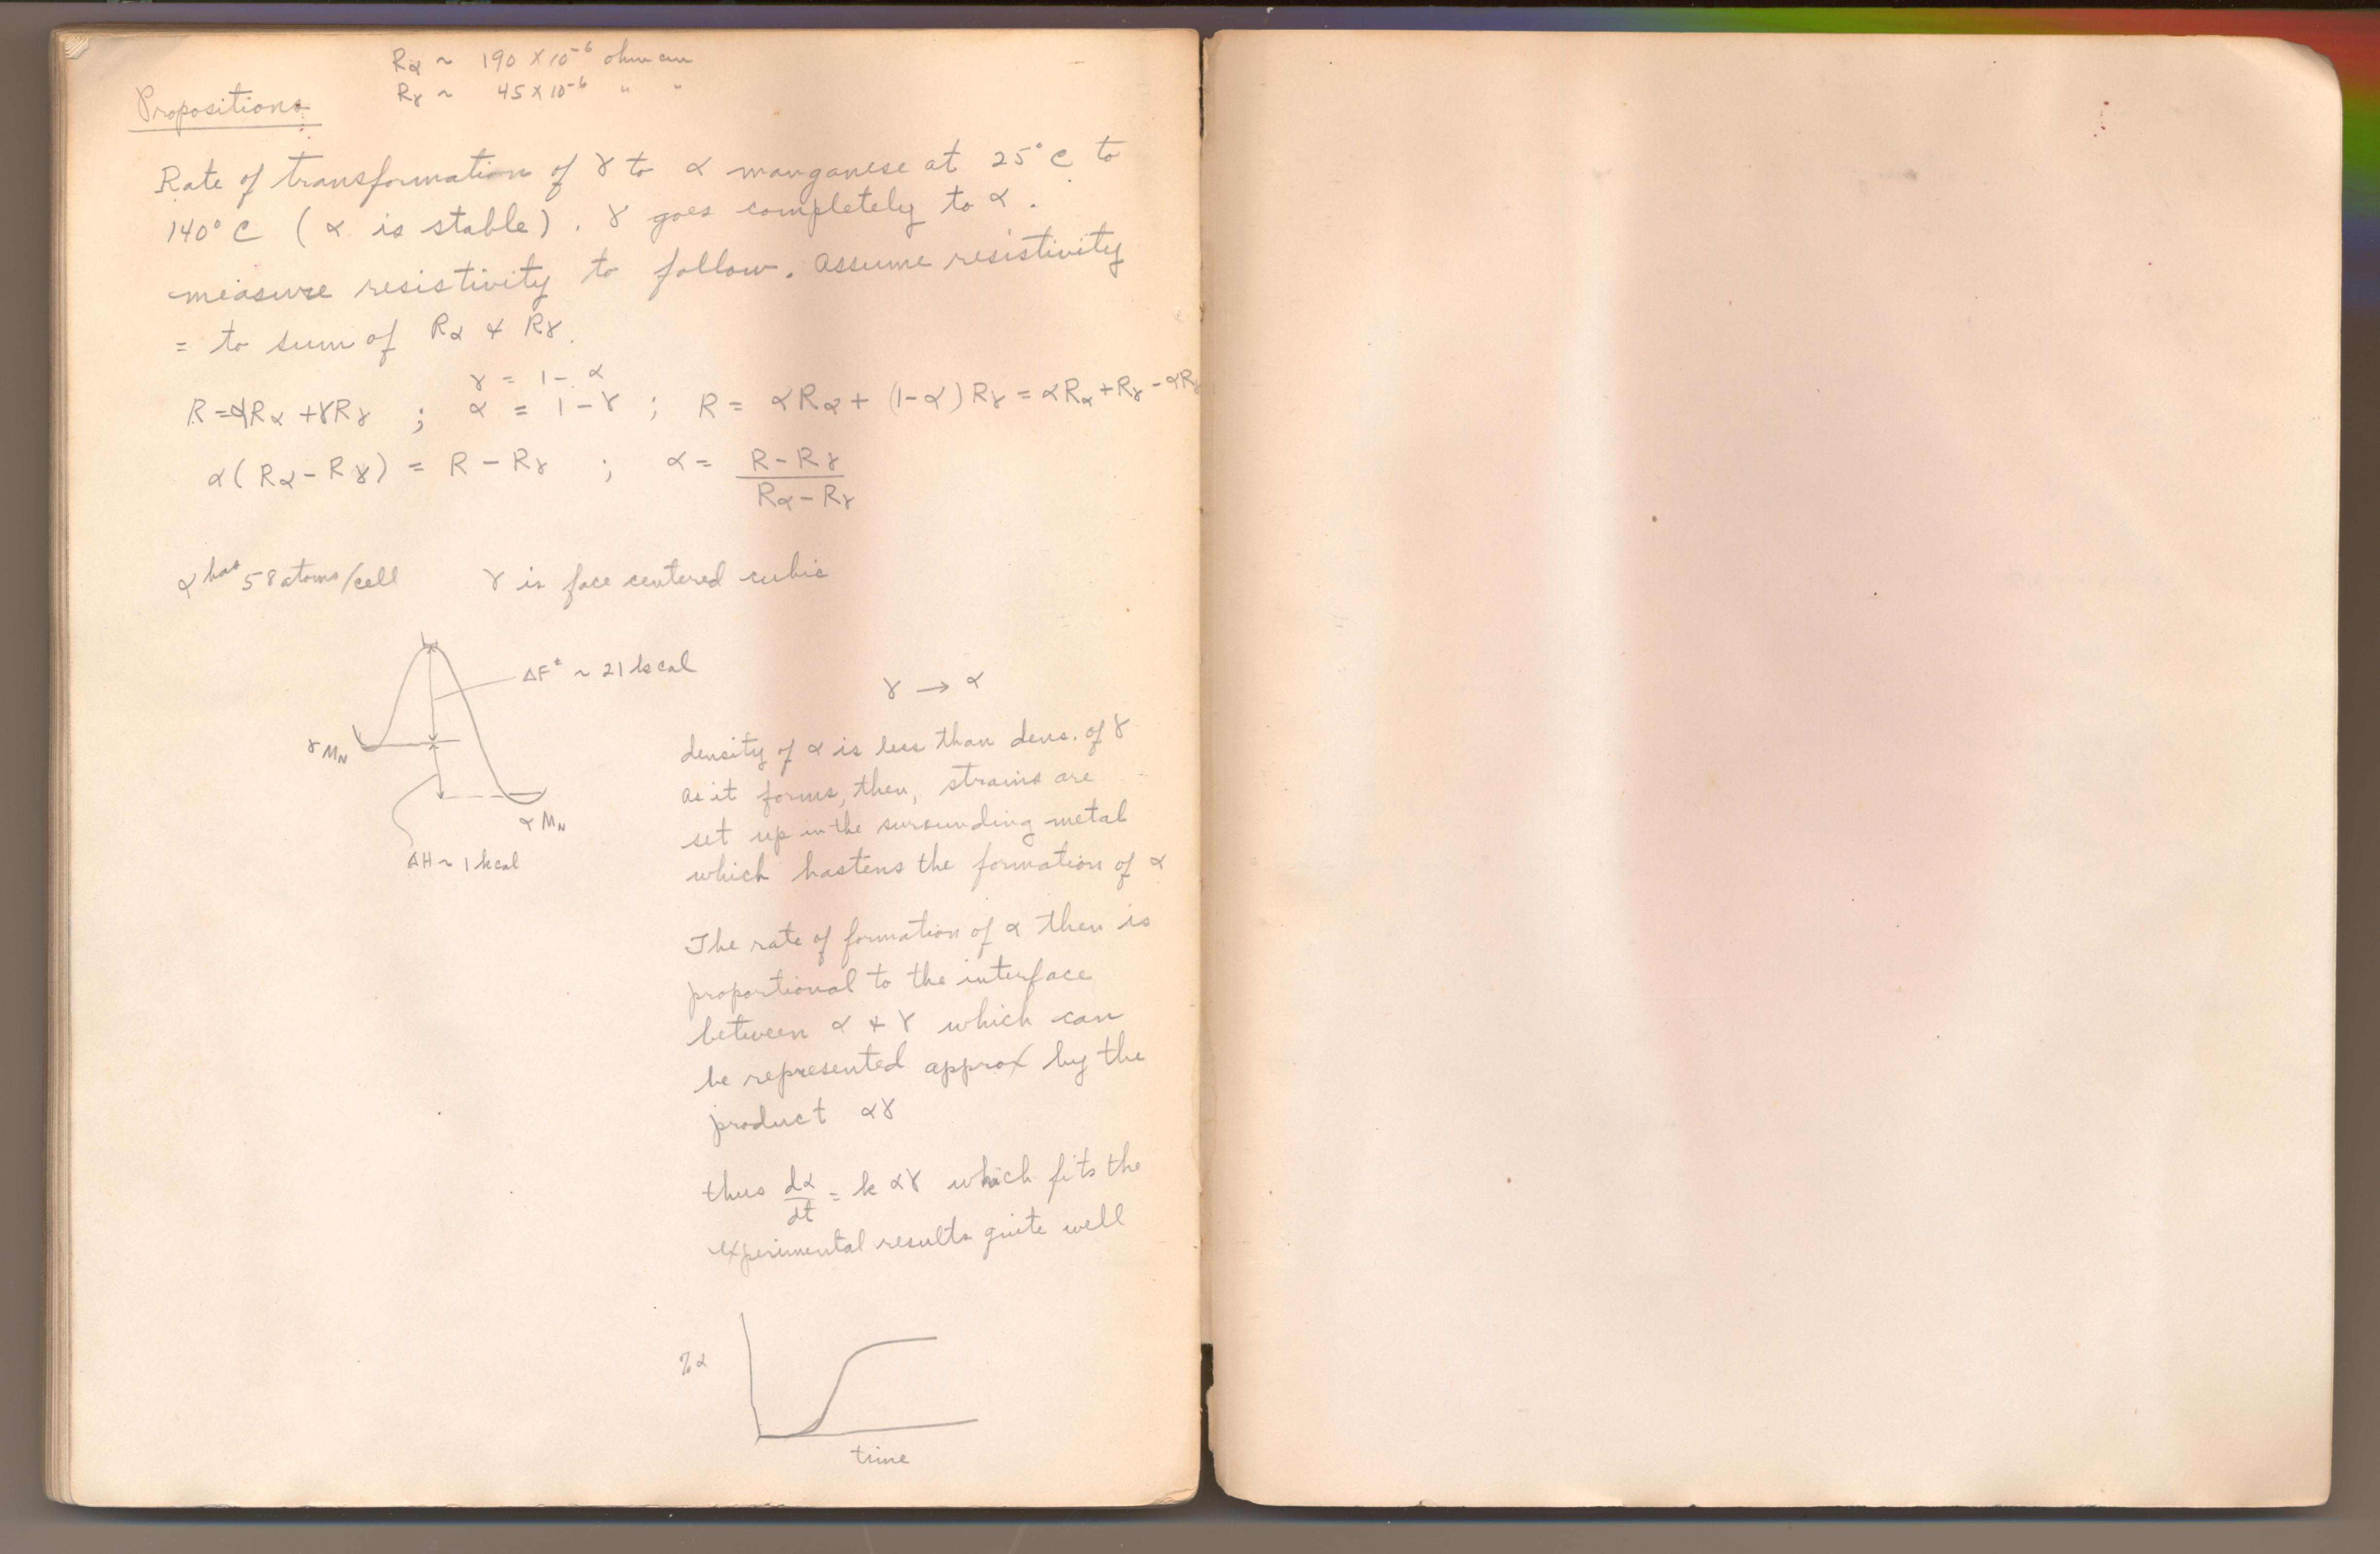 Rα ~ 190 × 10⁻⁶ ohm cm
Rγ ~ 45 × 10⁻⁶ " "
Propositions
Rate of transformation of γ to α manganese at 25°C to
140°C (α is stable). γ goes completely to α.
measure resistivity to follow. Assume resistivity
= to sum of Rα + Rγ.
γ = 1 - α
R = αRα + γRγ ; α = 1 - γ ; R = αRα + (1-α) Rγ = αRα + Rγ - αRγ
α(Rα - Rγ) = R - Rγ ; α = (R - Rγ)/(Rα - Rγ)
α has 58 atoms/cell γ is face centered cubic
ΔF‡ ~ 21 kcal
γ Mn
α Mn
ΔH ~ 1 kcal
γ → α
density of α is less than dens. of γ
as it forms, then, strains are
set up in the surounding metal
which hastens the formation of α
The rate of formation of α then is
proportional to the interface
between α + γ which can
be represented approx by the
product αγ
thus dα/dt = k αγ which fits the
experimental results quite well
% α
time